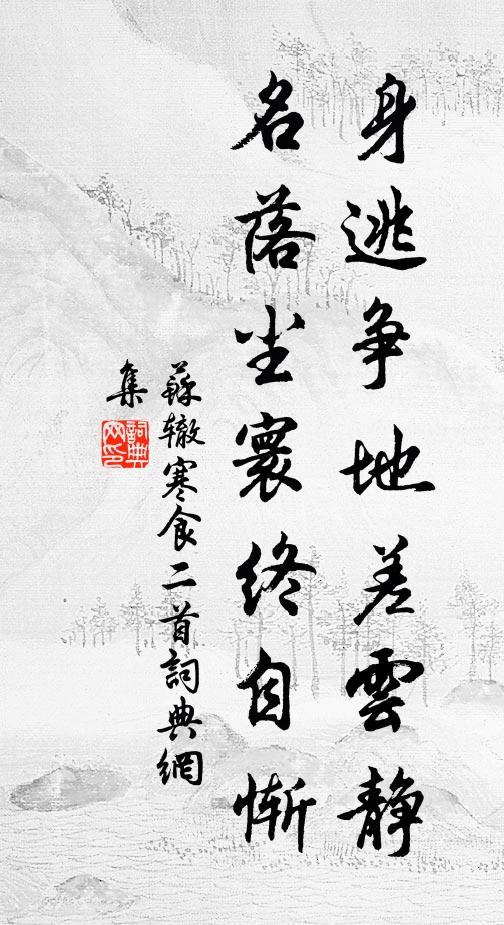 身逃争地差雲静
名落尘寰終自慚
蘇轍寒食二首詞典網
集
詞典
网印